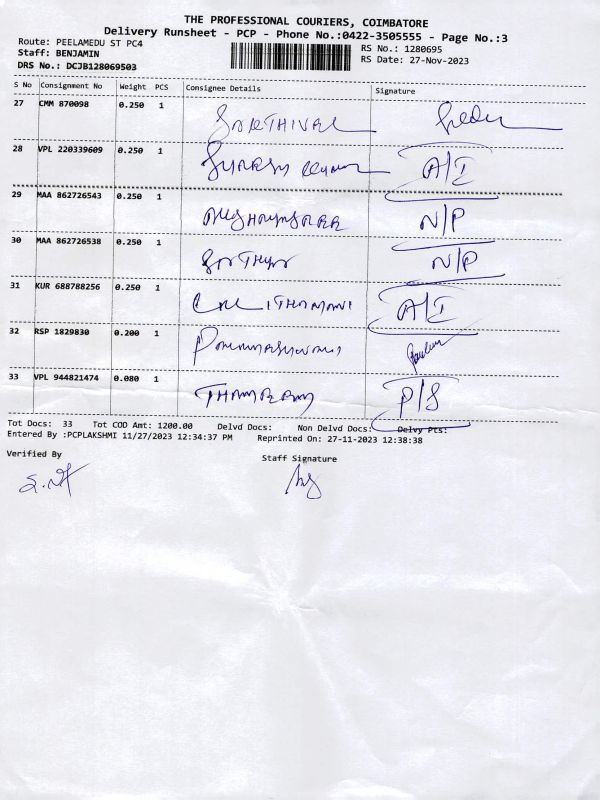 THE PROFESSIONAL COURIERS, COIMBATORE
Delivery Runsheet - PCP - Phone No.:0422-3505555 - Page No.:3
Route: PEELAMEDU ST PC4 RS No.: 1280695
Staff: BENJAMIN RS Date: 27-Nov-2023
DRS No.: DCJB128069503
S No Consignment No Weight PCS Consignee Details Signature
27 CMM 870098 0.250 1 SAKTHIVEL
28 VPL 220339609 0.250 1 A/I
29 MAA 862726543 0.250 1 N/P
30 MAA 862726538 0.250 1 N/P
31 KUR 688788256 0.250 1 A/I
32 RSP 1829830 0.200 1
33 VPL 944821474 0.080 1 P/S
Tot Docs: 33 Tot COD Amt: 1200.00 Delvd Docs: Non Delvd Docs: Delvy Pts:
Entered By :PCPLAKSHMI 11/27/2023 12:34:37 PM Reprinted On: 27-11-2023 12:38:38
Verified By Staff Signature